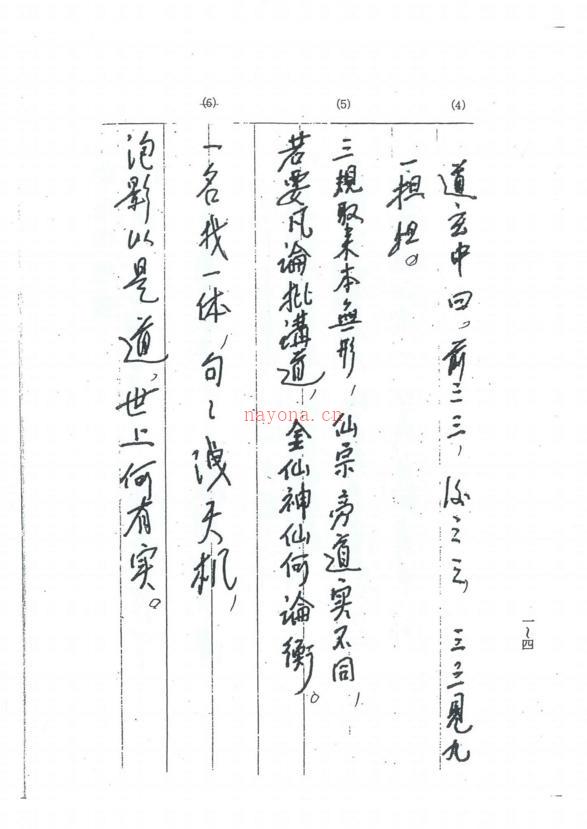 (4)
道玄中曰。前三三，後三三，三三見九
一担担。
(5)
三規取來本無形，仙宗旁道实不同，
若要凡論批講道，金仙神仙何論衡。
(6)
一名我一体，句々洩天机，
泡影以是道，世上何有实。
一~四
nayona.cn